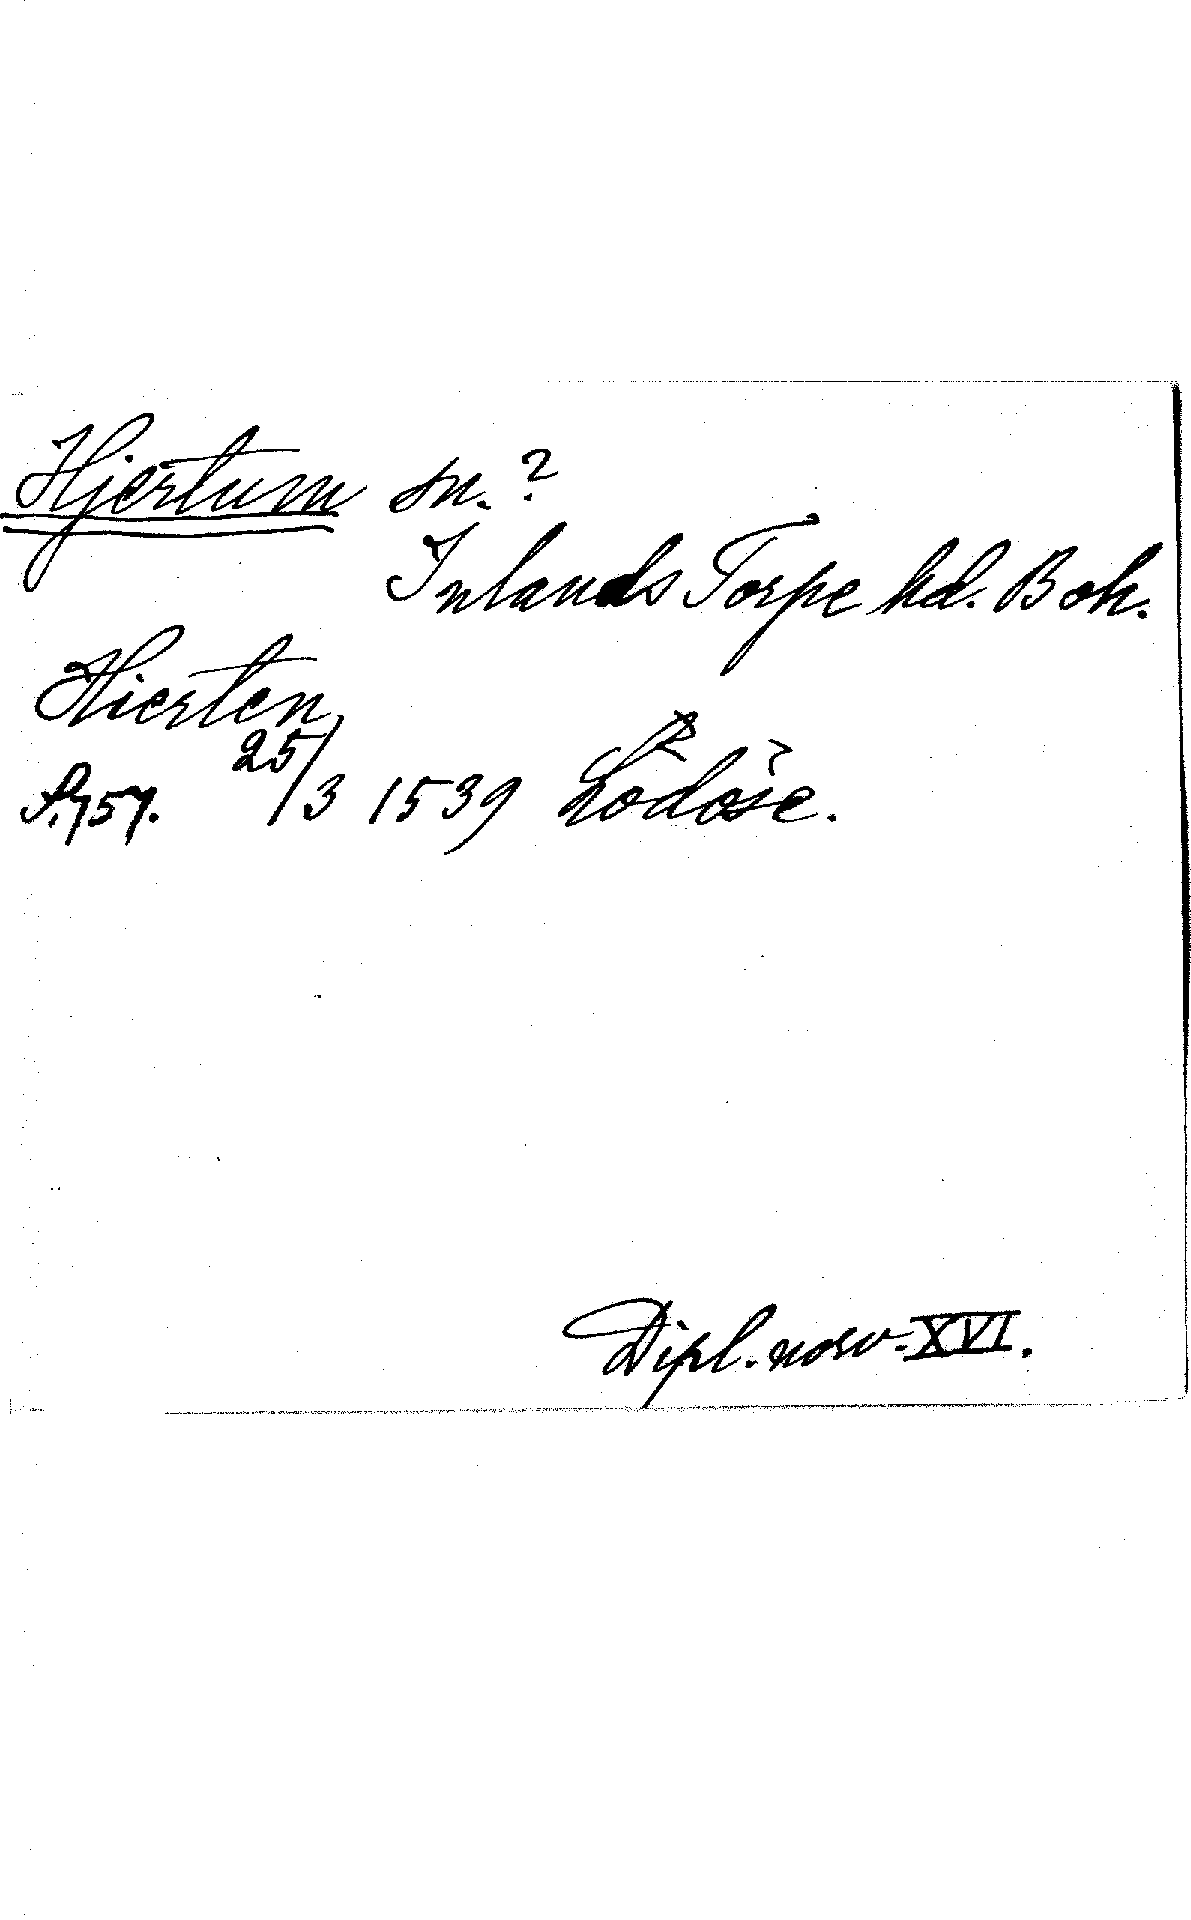 Hjertum sn.?
Inlands Torpe hd. Boh.
Hierten
S. 757. 25/3 1539 Lödöse.
Dipl. norv. XVI.